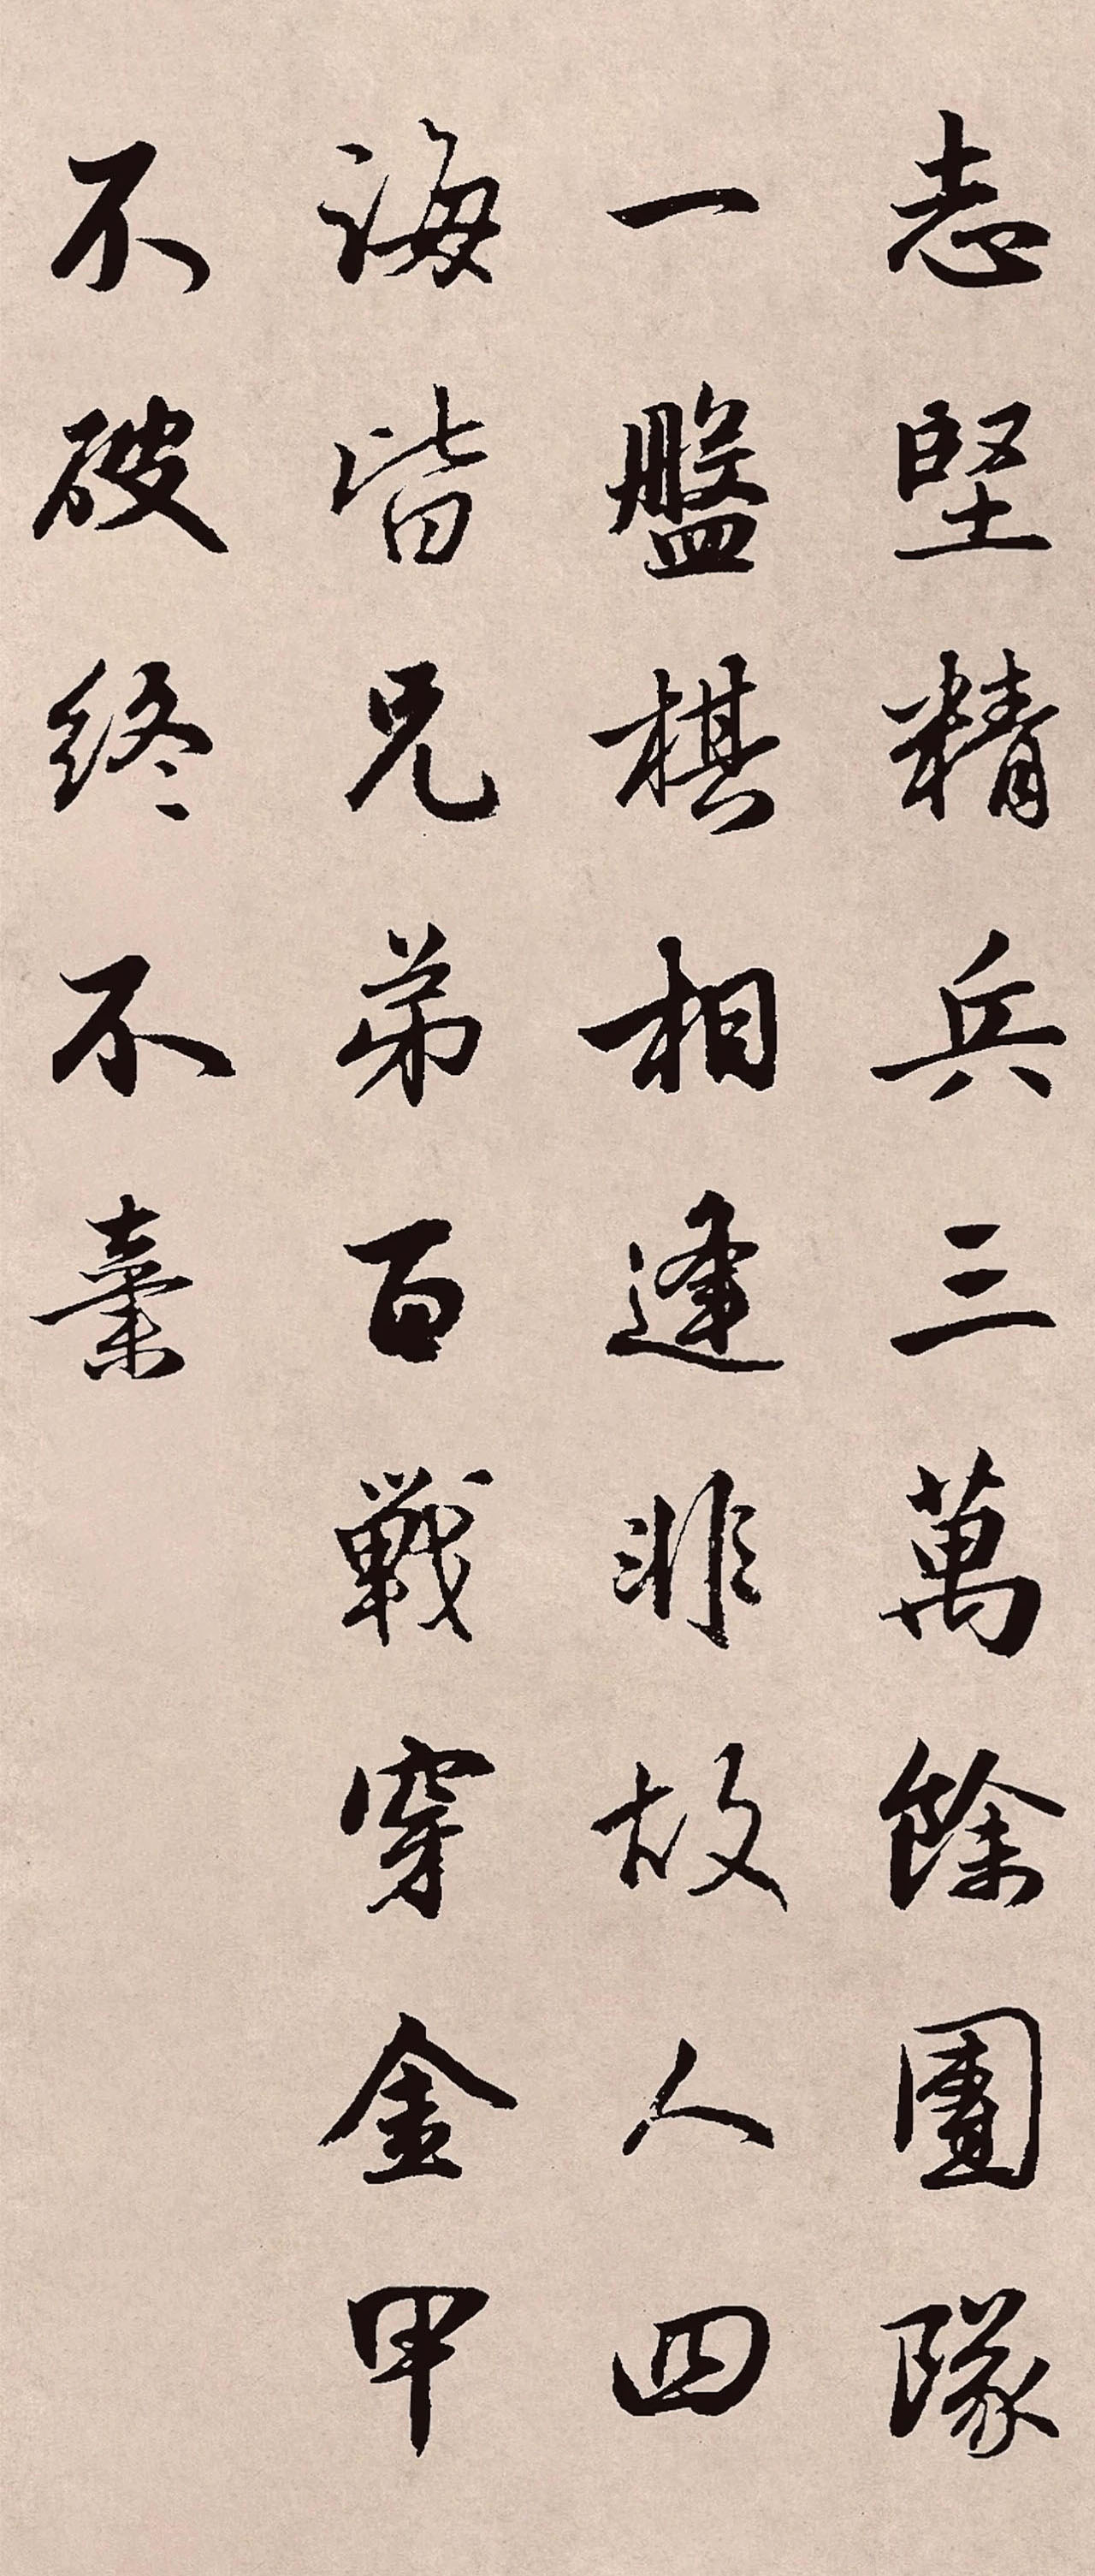 志堅精兵三萬餘團隊
一盤棋相逢非故人四
海皆兄弟百戰穿金甲
不破終不棄